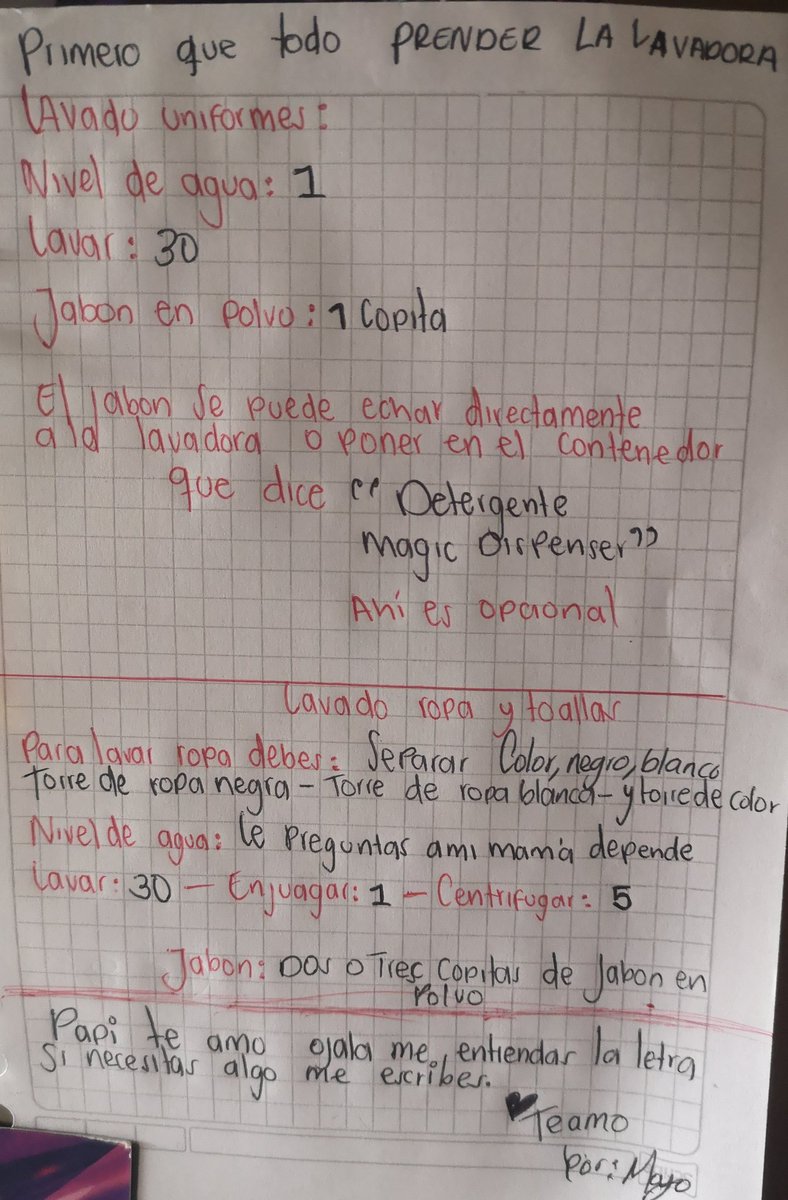 Primero que todo PRENDER LA LAVADORA
LAvado uniformes:
Nivel de agua: 1
lavar: 30
Jabon en polvo: 1 Copita
El Jabon se puede echar directamente
a la lavadora o poner en el contenedor
que dice "Detergente
magic Dispenser"
Ahí es opcional
lavado ropa y toallas
Para lavar ropa debes: Separar Color, negro, blanco
torre de ropa negra - Torre de ropa blanca - y torre de color
Nivel de agua: le preguntas a mi mamá depende
lavar: 30 - Enjuagar: 1 - Centrifugar: 5
Jabon: Dos o Tres Copitas de Jabon en
Polvo
Papi te amo ojala me entiendas la letra
Si necesitas algo me escribes.
♥ Te amo
por: Mayo